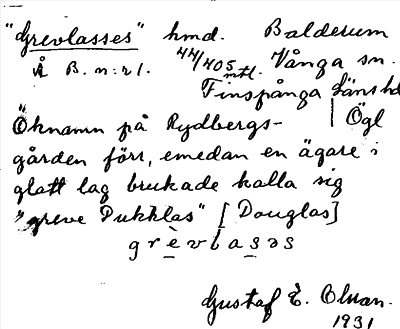 "Grevlasses" hmd. Balderum
Å B. n:r 1. 44/405 mtl. Vånga sn.
Finspånga länshd
Öknamn på Rydbergs- Ögl
gården förr, emedan en ägare i
glatt lag brukade kalla sig
"greve Dukklas" [Douglas]
grèvlasəs
Gustaf E. Olsson.
1931